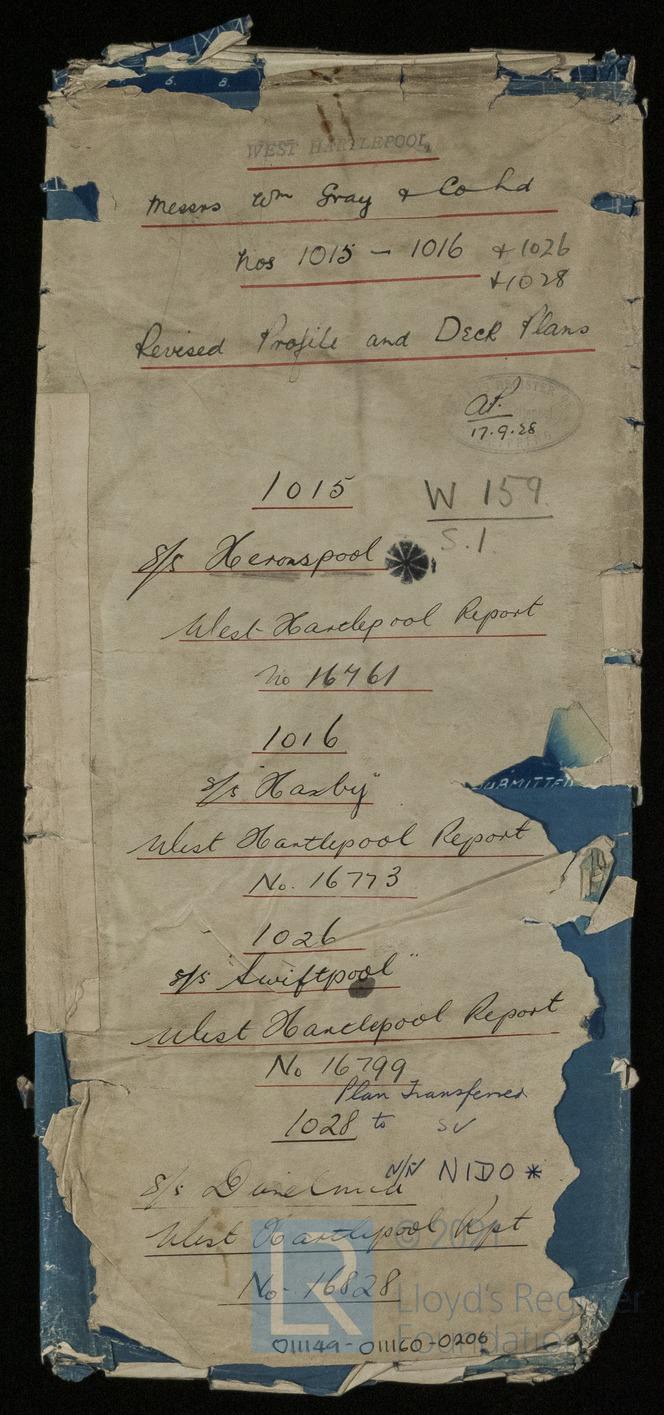 6. 8.
WEST HARTLEPOOL,
Messrs Wm Gray & Co Ld
Nos 1015 — 1016 + 1026
+ 1028
Revised Profile and Deck Plans
17.9.28
1015
W 159
S.1.
s/s Heronspool
West Hartlepool Report
No 16761
1016
s/s "Haxby"
West Hartlepool Report
No. 16773
SUBMITTED
1026
s/s "Swiftpool"
West Hartlepool Report
No 16799
Plan Transferred
1028 to SV
N/N NIDO *
s/s Dunelmia
West Hartlepool Rpt
No - 16828
LR
© 2021
Lloyd's Register
Foundation
011149-011160-0206